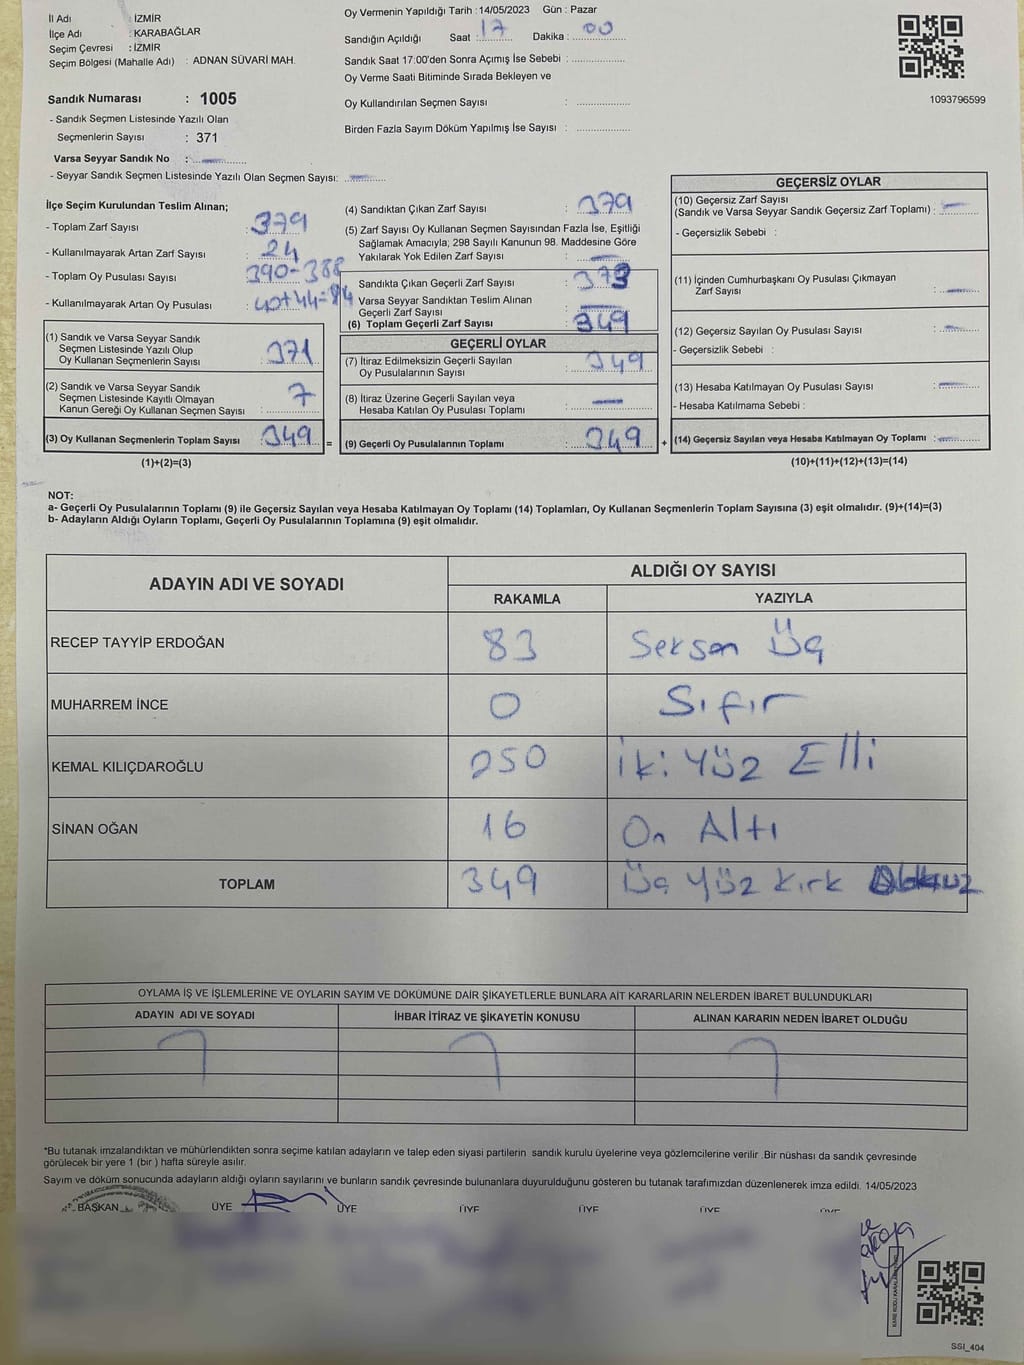 İl Adı : İZMİR
İlçe Adı : KARABAĞLAR
Seçim Çevresi : İZMİR
Seçim Bölgesi (Mahalle Adı) : ADNAN SÜVARİ MAH.
Sandık Numarası : 1005
- Sandık Seçmen Listesinde Yazılı Olan
Seçmenlerin Sayısı : 371
Varsa Seyyar Sandık No :
- Seyyar Sandık Seçmen Listesinde Yazılı Olan Seçmen Sayısı:
Oy Vermenin Yapıldığı Tarih : 14/05/2023 Gün : Pazar
Sandığın Açıldığı Saat : 17 Dakika : 00
Sandık Saat 17:00'den Sonra Açımış İse Sebebi :
Oy Verme Saati Bitiminde Sırada Bekleyen ve
Oy Kullandırılan Seçmen Sayısı :
Birden Fazla Sayım Döküm Yapılmış İse Sayısı :
1093796599
İlçe Seçim Kurulundan Teslim Alınan;
- Toplam Zarf Sayısı : 379
- Kullanılmayarak Artan Zarf Sayısı : 24
- Toplam Oy Pusulası Sayısı : 390-388
- Kullanılmayarak Artan Oy Pusulası : 40+44=84
(1) Sandık ve Varsa Seyyar Sandık
Seçmen Listesinde Yazılı Olup
Oy Kullanan Seçmenlerin Sayısı : 371
(2) Sandık ve Varsa Seyyar Sandık
Seçmen Listesinde Kayıtlı Olmayan
Kanun Gereği Oy Kullanan Seçmen Sayısı : 7
(3) Oy Kullanan Seçmenlerin Toplam Sayısı : 349 =
(1)+(2)=(3)
(4) Sandıktan Çıkan Zarf Sayısı : 379
(5) Zarf Sayısı Oy Kullanan Seçmen Sayısından Fazla İse, Eşitliği
Sağlamak Amacıyla; 298 Sayılı Kanunun 98. Maddesine Göre
Yakılarak Yok Edilen Zarf Sayısı :
Sandıkta Çıkan Geçerli Zarf Sayısı :
Varsa Seyyar Sandıktan Teslim Alınan
Geçerli Zarf Sayısı :
(6) Toplam Geçerli Zarf Sayısı : 349
GEÇERLİ OYLAR
(7) İtiraz Edilmeksizin Geçerli Sayılan
Oy Pusulalarının Sayısı : 349
(8) İtiraz Üzerine Geçerli Sayılan veya
Hesaba Katılan Oy Pusulası Toplamı :
(9) Geçerli Oy Pusulalarının Toplamı : 349 +
GEÇERSİZ OYLAR
(10) Geçersiz Zarf Sayısı
(Sandık ve Varsa Seyyar Sandık Geçersiz Zarf Toplamı) :
- Geçersizlik Sebebi :
(11) İçinden Cumhurbaşkanı Oy Pusulası Çıkmayan
Zarf Sayısı :
(12) Geçersiz Sayılan Oy Pusulası Sayısı :
- Geçersizlik Sebebi :
(13) Hesaba Katılmayan Oy Pusulası Sayısı :
- Hesaba Katılmama Sebebi :
(14) Geçersiz Sayılan veya Hesaba Katılmayan Oy Toplamı :
(10)+(11)+(12)+(13)=(14)
NOT:
a- Geçerli Oy Pusulalarının Toplamı (9) ile Geçersiz Sayılan veya Hesaba Katılmayan Oy Toplamı (14) Toplamları, Oy Kullanan Seçmenlerin Toplam Sayısına (3) eşit olmalıdır. (9)+(14)=(3)
b- Adayların Aldığı Oyların Toplamı, Geçerli Oy Pusulalarının Toplamına (9) eşit olmalıdır.
ADAYIN ADI VE SOYADI
ALDIĞI OY SAYISI
RAKAMLA YAZIYLA
RECEP TAYYİP ERDOĞAN 83 Seksen Üç
MUHARREM İNCE 0 Sıfır
KEMAL KILIÇDAROĞLU 250 İki Yüz Elli
SİNAN OĞAN 16 On Altı
TOPLAM 349 Üç Yüz Kırk
OYLAMA İŞ VE İŞLEMLERİNE VE OYLARIN SAYIM VE DÖKÜMÜNE DAİR ŞİKAYETLERLE BUNLARA AİT KARARLARIN NELERDEN İBARET BULUNDUKLARI
ADAYIN ADI VE SOYADI İHBAR İTİRAZ VE ŞİKAYETİN KONUSU ALINAN KARARIN NEDEN İBARET OLDUĞU
*Bu tutanak imzalandıktan ve mühürlendikten sonra seçime katılan adayların ve talep eden siyasi partilerin sandık kurulu üyelerine veya gözlemcilerine verilir .Bir nüshası da sandık çevresinde
görülecek bir yere 1 (bir ) hafta süreyle asılır.
Sayım ve döküm sonucunda adayların aldığı oyların sayılarını ve bunların sandık çevresinde bulunanlara duyurulduğunu gösteren bu tutanak tarafımızdan düzenlenerek imza edildi. 14/05/2023
BAŞKAN ÜYE ÜYE ÜYE ÜYE ÜYE
SSI_404